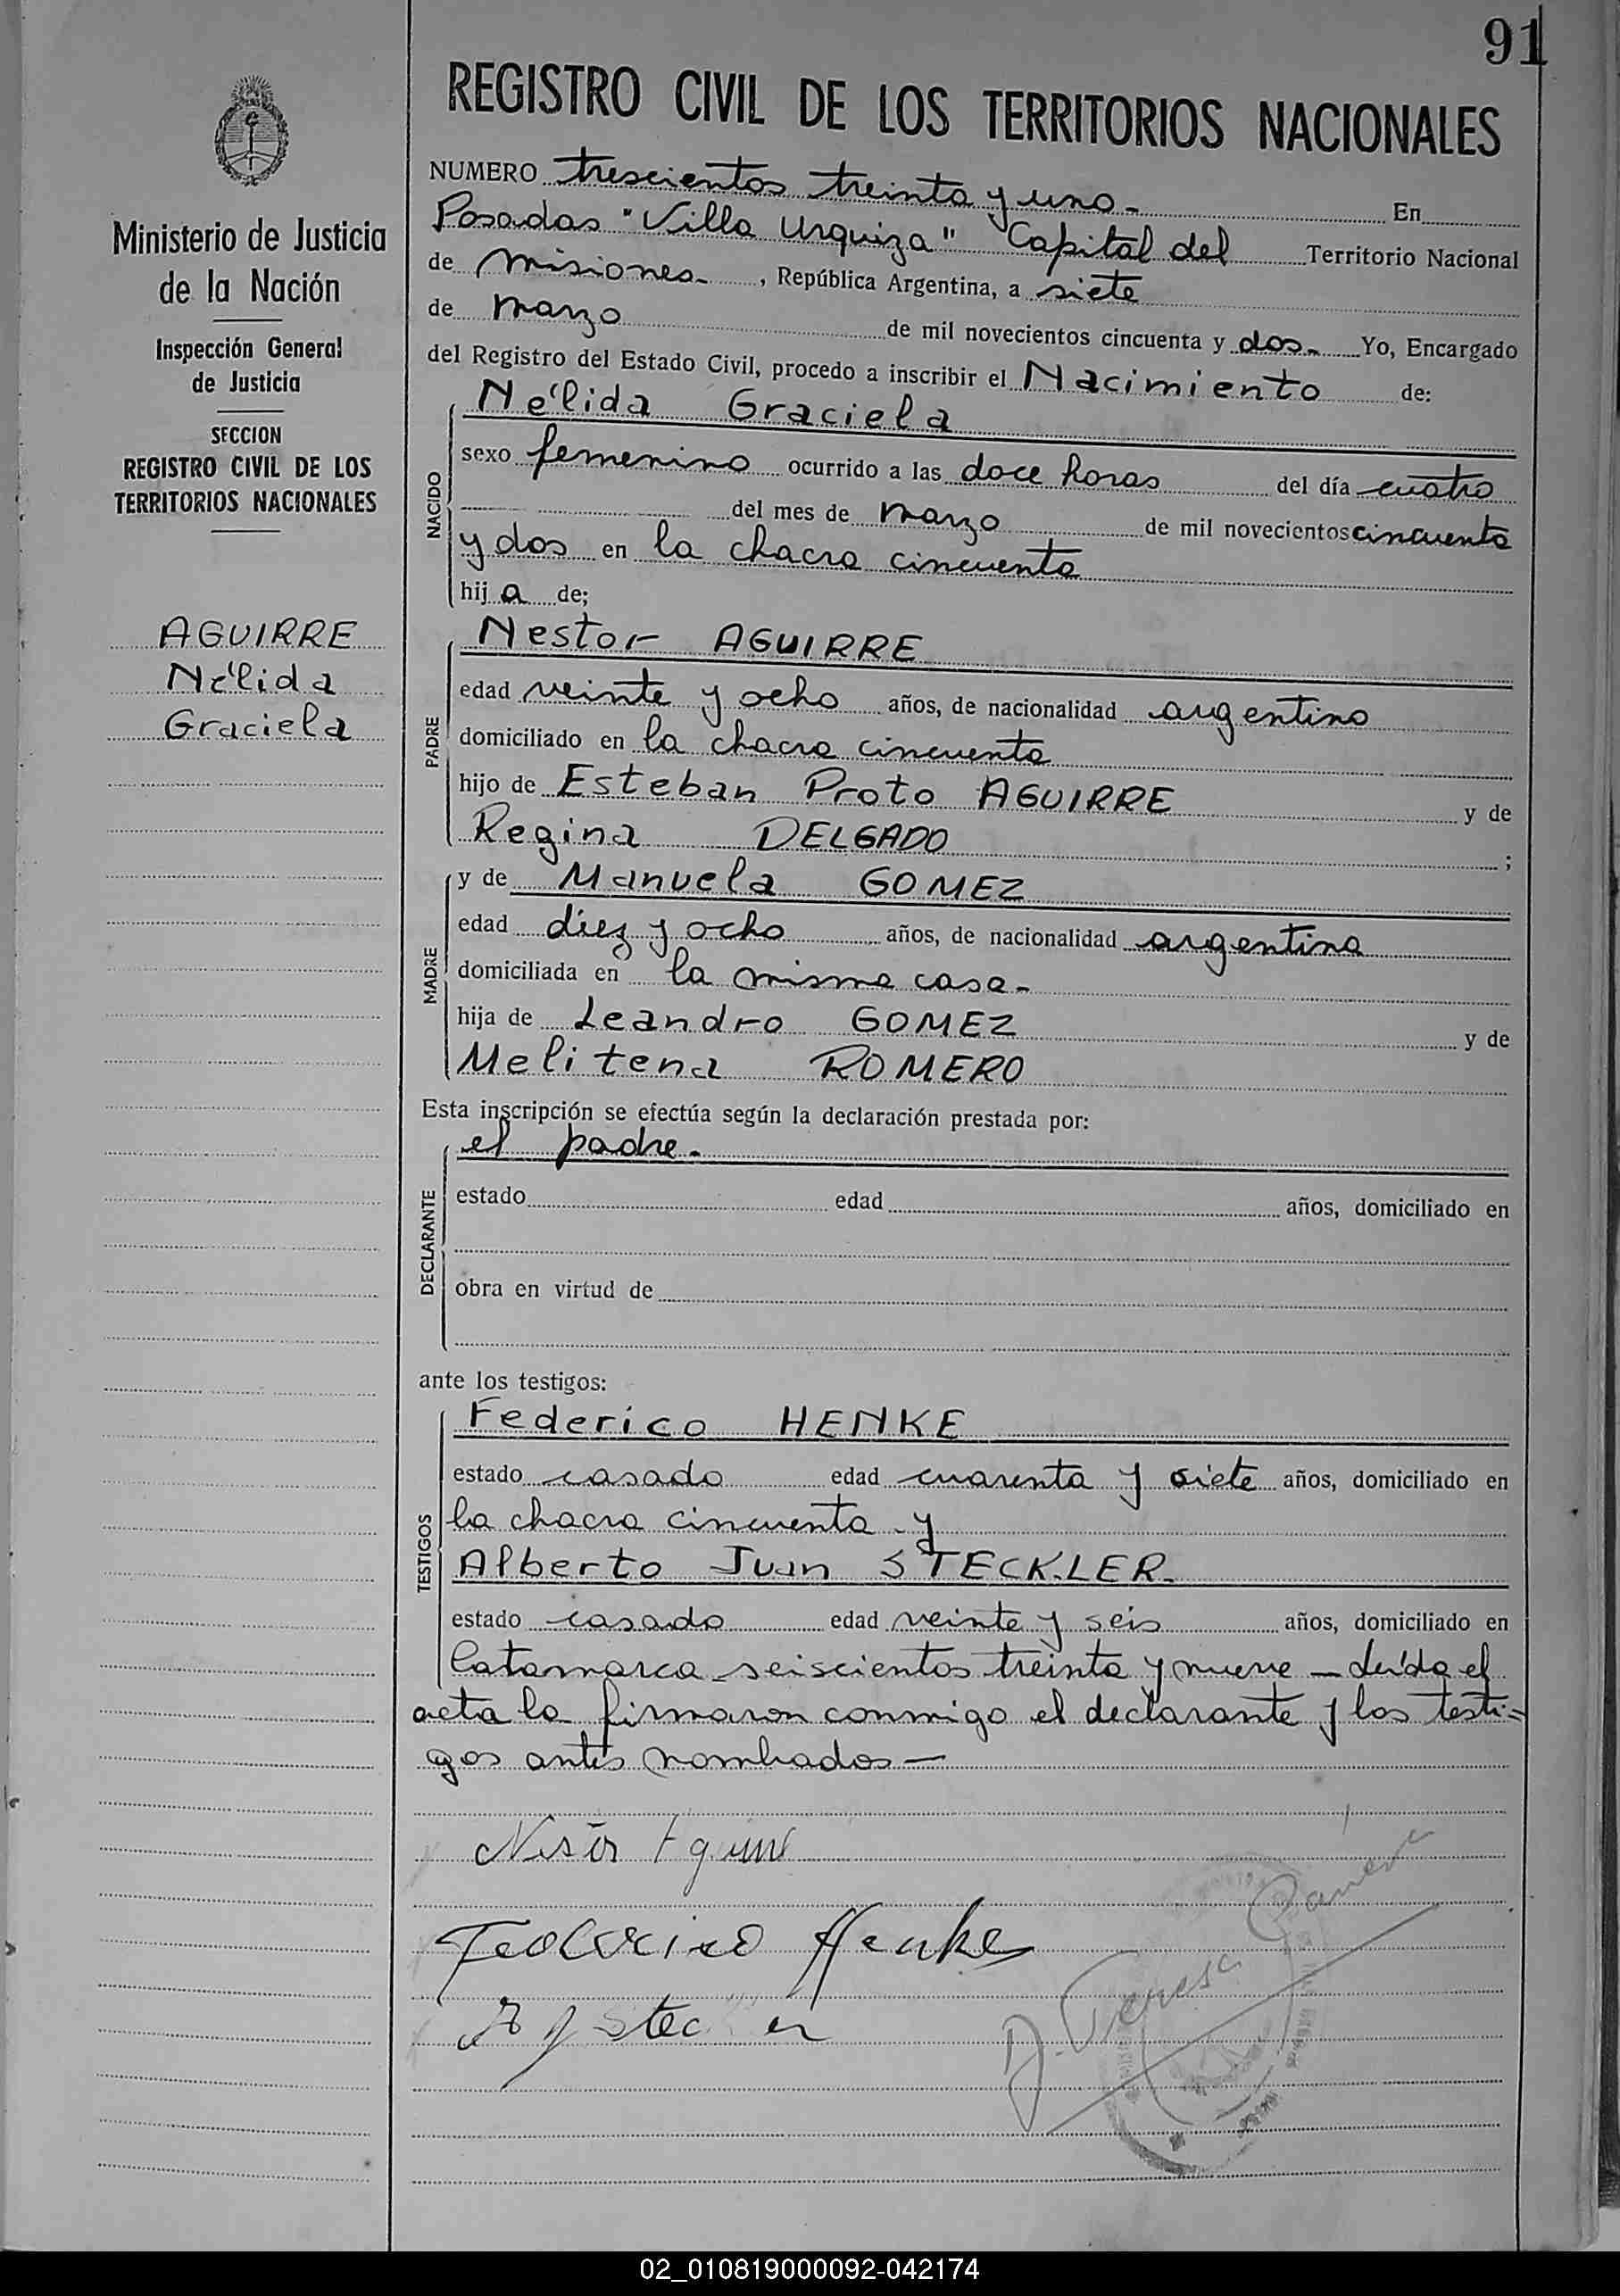 91
REGISTRO CIVIL DE LOS TERRITORIOS NACIONALES
Ministerio de Justicia
de la Nación
Inspección General
de Justicia
SECCION
REGISTRO CIVIL DE LOS
TERRITORIOS NACIONALES
AGUIRRE
Nélida
Graciela
NUMERO trescientos treinta y uno - En
Posadas "Villa Urquiza" Capital del Territorio Nacional
de Misiones-, República Argentina, a siete
de Marzo de mil novecientos cincuenta y dos- Yo, Encargado
del Registro del Estado Civil, procedo a inscribir el Nacimiento de:
NACIDO
Nélida Graciela
sexo femenino ocurrido a las doce horas del día cuatro
del mes de Marzo de mil novecientos cincuenta
y dos en la chacra cincuenta
hija de;
PADRE
Nestor AGUIRRE
edad veinte y ocho años, de nacionalidad argentino
domiciliado en la chacra cincuenta
hijo de Esteban Proto AGUIRRE y de
Regina DELGADO ;
MADRE
y de Manuela GOMEZ
edad diez y ocho años, de nacionalidad argentina
domiciliada en la misma casa-
hija de Leandro GOMEZ y de
Melitena ROMERO
Esta inscripción se efectúa según la declaración prestada por:
DECLARANTE
el padre.
estado edad años, domiciliado en
obra en virtud de
ante los testigos:
TESTIGOS
Federico HENKE
estado casado edad cuarenta y siete años, domiciliado en
la chacra cincuenta y
Alberto Juan STECKLER-
estado casado edad veinte y seis años, domiciliado en
Catamarca seiscientos treinta y nueve - Leída el
acta la firmaron conmigo el declarante y los testi=
gos antes nombrados-
Federico Henke
02_010819000092-042174